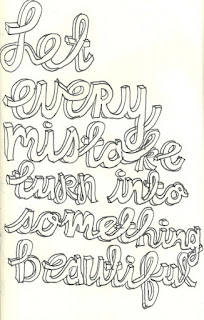 Let
every
mistake
turn into
something
beautiful